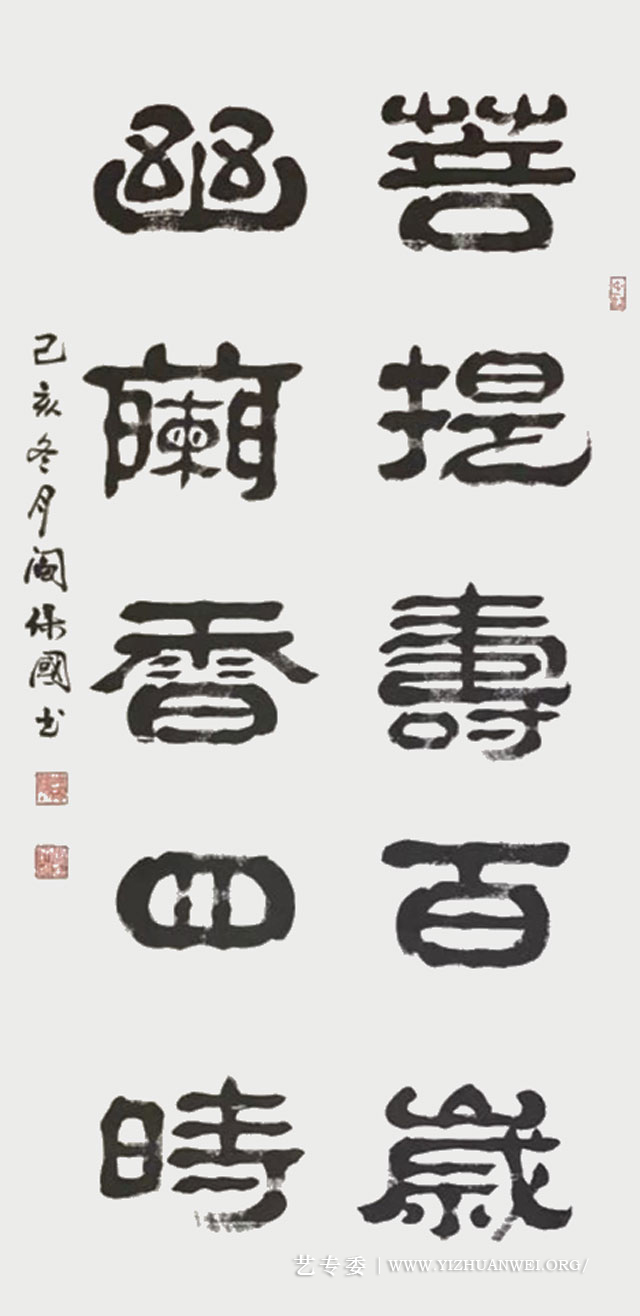 菩提壽百歲
幽蘭香四時
己亥冬月阚保國书
艺专委 | WWW.YIZHUANWEI.ORG/